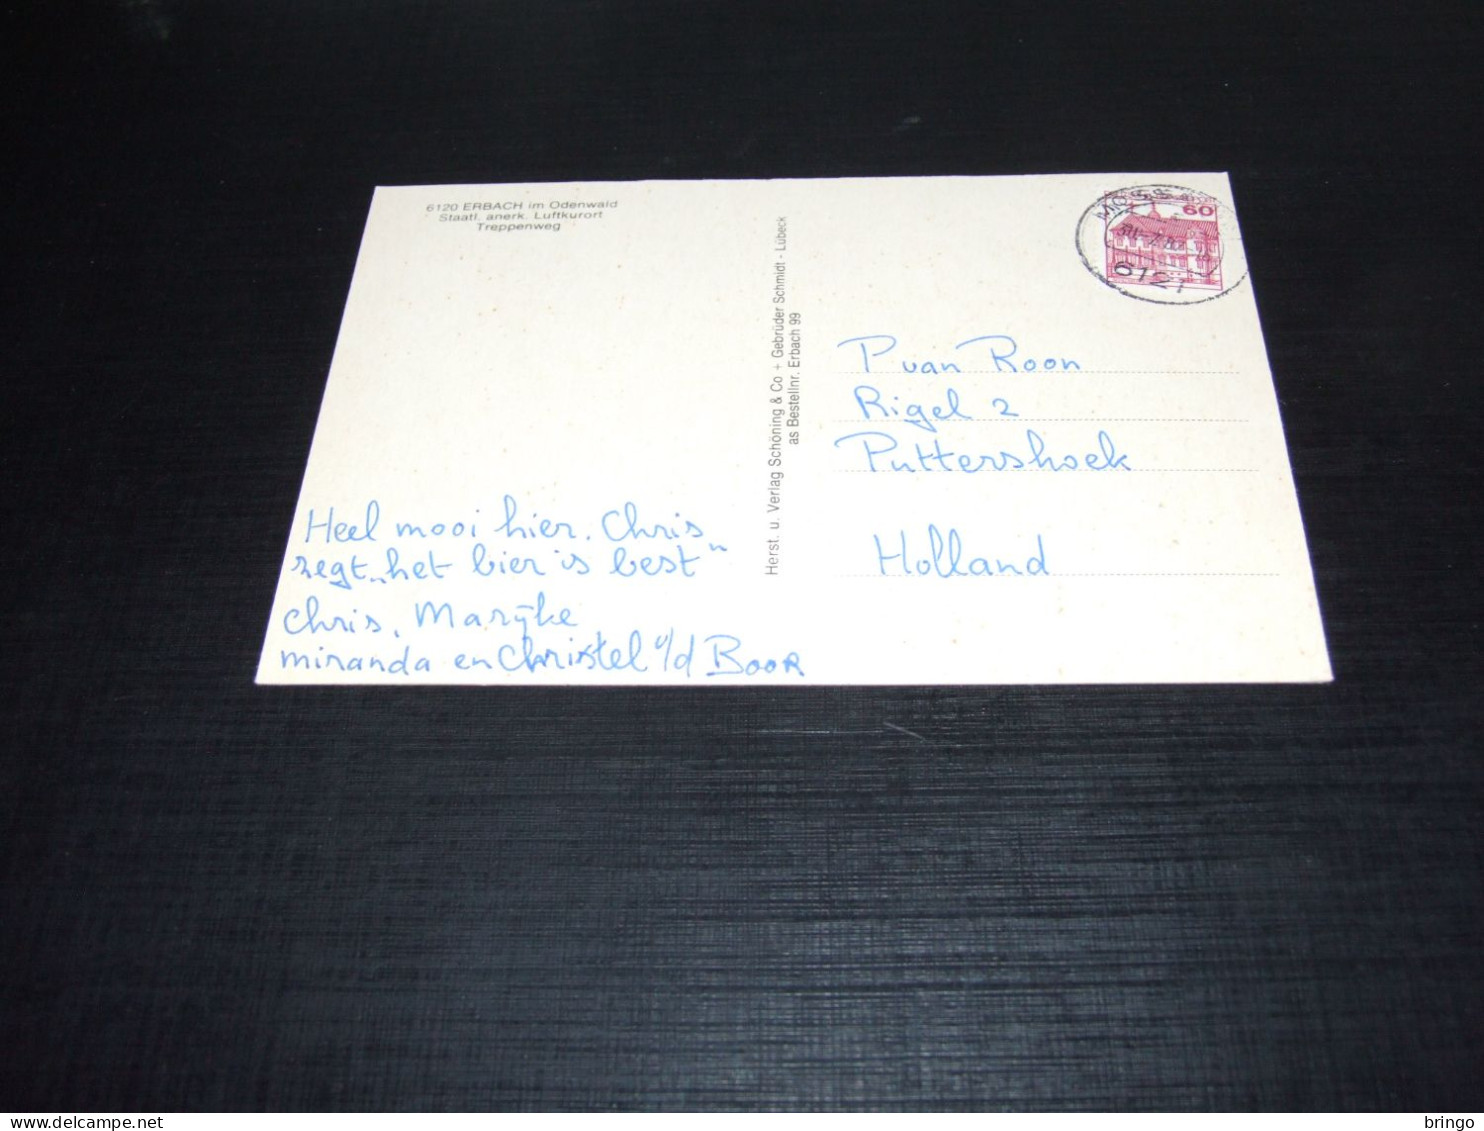 6120 ERBACH im Odenwald
Staatl. anerk. Luftkurort
Treppenweg
Heel mooi hier. Chris
zegt „het bier is best"
Chris, Marijke
miranda en Christel v/d BOOR
Herst. u. Verlag Schöning & Co + Gebrüder Schmidt - Lübeck
as Bestellnr. Erbach 99
60
6121
P van Roon
Rigel 2
Puttershoek
Holland
bringo